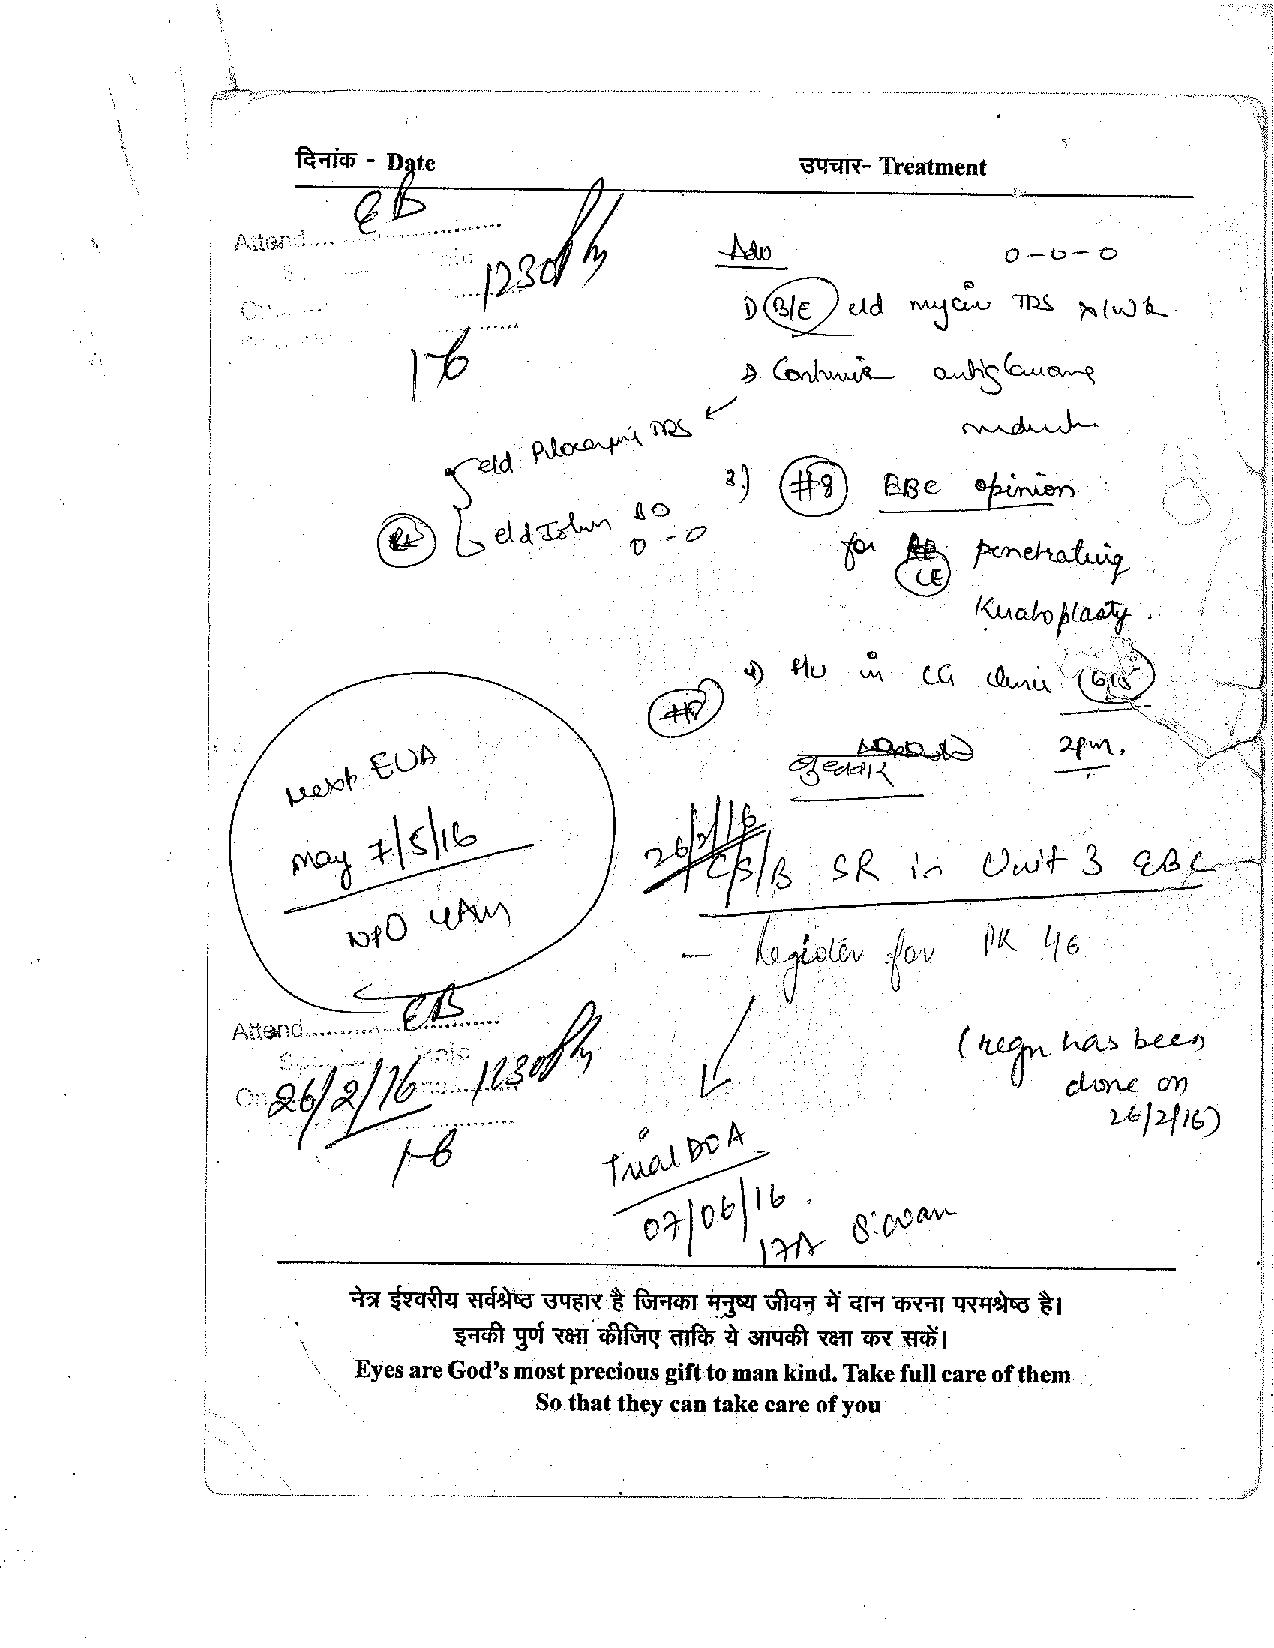 दिनांक - Date
उपचार- Treatment
Attend... EB
1230
1-6
Adv
0-0-0
1) B/E eld mycin TDS x 1 wk
2) Continue antiglaucoma
eld Pilocarpine TDS
3) #8 EBC opinion
RE
for LE penetrating
Keratoplasty.
4) f/u in CG clinic
#8
2pm.
बुधवार
Next EUA
May 7/5/16
NPO 4AM
26/2/16
C/S/B SR in Unit 3 EBC
- Register for PK 46
Attend... EB
(regn has been
done on
26/2/16)
On 26/2/16 1230
1-6
Trial DOA
07/06/16.
17A
नेत्र ईश्वरीय सर्वश्रेष्ठ उपहार है जिनका मनुष्य जीवन में दान करना परमश्रेष्ठ है।
इनकी पुर्ण रक्षा कीजिए ताकि ये आपकी रक्षा कर सकें।
Eyes are God's most precious gift to man kind. Take full care of them
So that they can take care of you